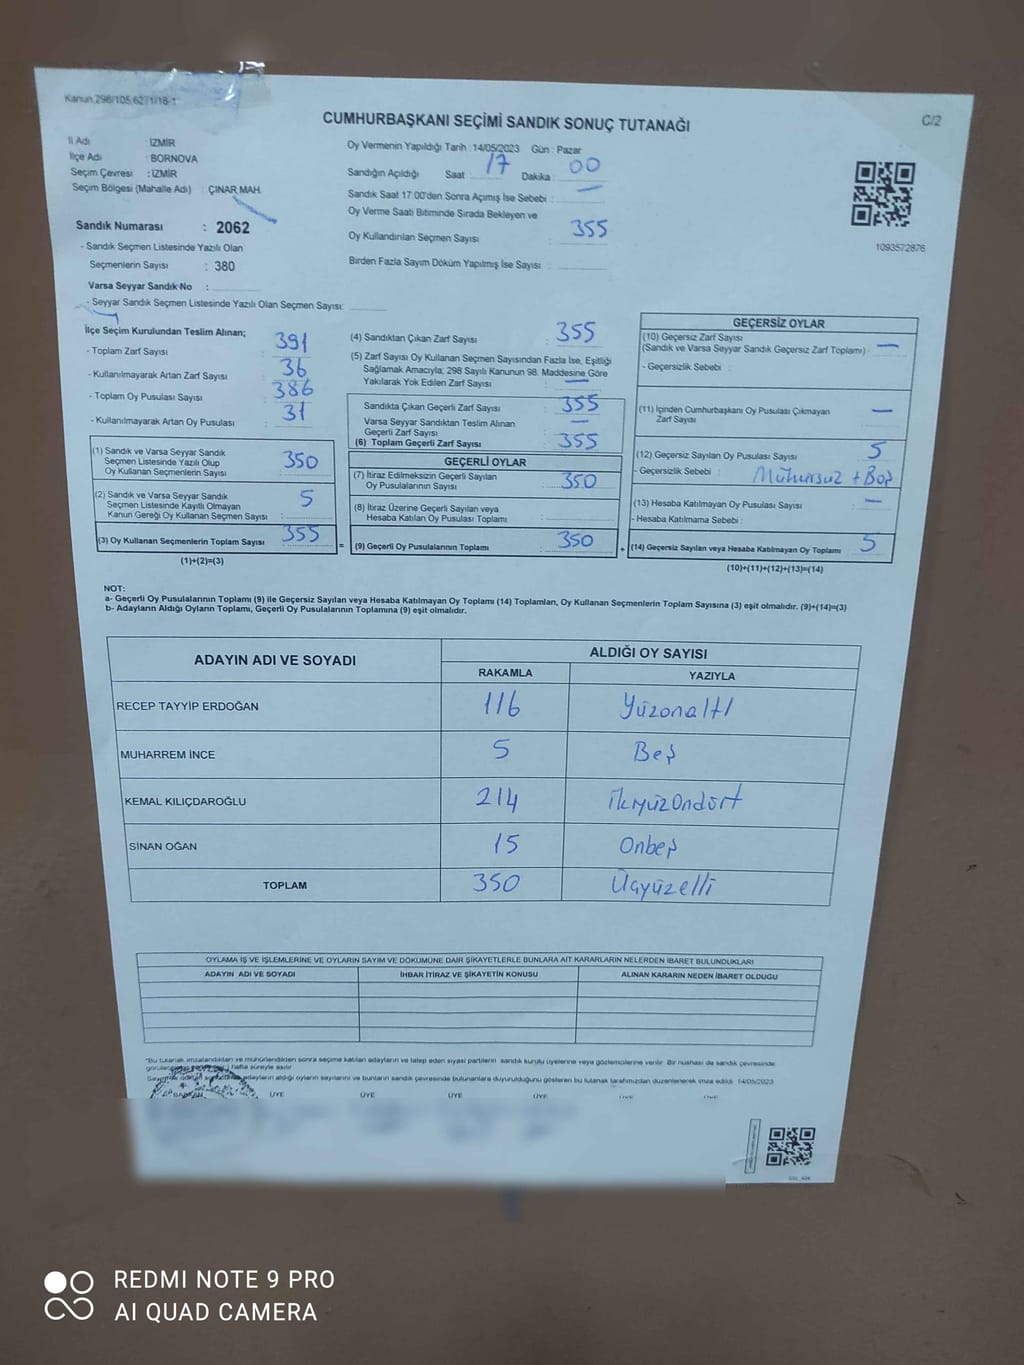 Kanun,298/105,6271/18-1
C/2
CUMHURBAŞKANI SEÇİMİ SANDIK SONUÇ TUTANAĞI
İl Adı : İZMİR
İlçe Adı : BORNOVA
Seçim Çevresi : İZMİR
Seçim Bölgesi (Mahalle Adı) : ÇINAR MAH.
Sandık Numarası : 2062
- Sandık Seçmen Listesinde Yazılı Olan
Seçmenlerin Sayısı : 380
Varsa Seyyar Sandık No :
- Seyyar Sandık Seçmen Listesinde Yazılı Olan Seçmen Sayısı:
Oy Vermenin Yapıldığı Tarih : 14/05/2023 Gün : Pazar
Sandığın Açıldığı Saat 17 Dakika 00
Sandık Saat 17:00'den Sonra Açımış İse Sebebi : —
Oy Verme Saati Bitiminde Sırada Bekleyen ve
Oy Kullandırılan Seçmen Sayısı : 355
Birden Fazla Sayım Döküm Yapılmış İse Sayısı :
1093572876
İlçe Seçim Kurulundan Teslim Alınan;
- Toplam Zarf Sayısı : 391
- Kullanılmayarak Artan Zarf Sayısı : 36
- Toplam Oy Pusulası Sayısı : 386
- Kullanılmayarak Artan Oy Pusulası : 31
(1) Sandık ve Varsa Seyyar Sandık
Seçmen Listesinde Yazılı Olup
Oy Kullanan Seçmenlerin Sayısı : 350
(2) Sandık ve Varsa Seyyar Sandık
Seçmen Listesinde Kayıtlı Olmayan
Kanun Gereği Oy Kullanan Seçmen Sayısı : 5
(3) Oy Kullanan Seçmenlerin Toplam Sayısı : 355
(1)+(2)=(3)
(4) Sandıktan Çıkan Zarf Sayısı : 355
(5) Zarf Sayısı Oy Kullanan Seçmen Sayısından Fazla İse, Eşitliği
Sağlamak Amacıyla; 298 Sayılı Kanunun 98. Maddesine Göre
Yakılarak Yok Edilen Zarf Sayısı : —
Sandıkta Çıkan Geçerli Zarf Sayısı : 355
Varsa Seyyar Sandıktan Teslim Alınan
Geçerli Zarf Sayısı : —
(6) Toplam Geçerli Zarf Sayısı : 355
GEÇERLİ OYLAR
(7) İtiraz Edilmeksizin Geçerli Sayılan
Oy Pusulalarının Sayısı : 350
(8) İtiraz Üzerine Geçerli Sayılan veya
Hesaba Katılan Oy Pusulası Toplamı :
= (9) Geçerli Oy Pusulalarının Toplamı : 350 +
GEÇERSİZ OYLAR
(10) Geçersiz Zarf Sayısı
(Sandık ve Varsa Seyyar Sandık Geçersiz Zarf Toplamı) : —
- Geçersizlik Sebebi :
(11) İçinden Cumhurbaşkanı Oy Pusulası Çıkmayan
Zarf Sayısı : —
(12) Geçersiz Sayılan Oy Pusulası Sayısı : 5
- Geçersizlik Sebebi : Mühürsüz + Boş
(13) Hesaba Katılmayan Oy Pusulası Sayısı : —
- Hesaba Katılmama Sebebi :
(14) Geçersiz Sayılan veya Hesaba Katılmayan Oy Toplamı : 5
(10)+(11)+(12)+(13)=(14)
NOT:
a- Geçerli Oy Pusulalarının Toplamı (9) ile Geçersiz Sayılan veya Hesaba Katılmayan Oy Toplamı (14) Toplamları, Oy Kullanan Seçmenlerin Toplam Sayısına (3) eşit olmalıdır. (9)+(14)=(3)
b- Adayların Aldığı Oyların Toplamı, Geçerli Oy Pusulalarının Toplamına (9) eşit olmalıdır.
ADAYIN ADI VE SOYADI ALDIĞI OY SAYISI
RAKAMLA YAZIYLA
RECEP TAYYİP ERDOĞAN 116 Yüzonaltı
MUHARREM İNCE 5 Beş
KEMAL KILIÇDAROĞLU 214 ikiyüzondört
SİNAN OĞAN 15 Onbeş
TOPLAM 350 Üçyüzelli
OYLAMA İŞ VE İŞLEMLERİNE VE OYLARIN SAYIM VE DÖKÜMÜNE DAİR ŞİKAYETLERLE BUNLARA AİT KARARLARIN NELERDEN İBARET BULUNDUKLARI
ADAYIN ADI VE SOYADI İHBAR İTİRAZ VE ŞİKAYETİN KONUSU ALINAN KARARIN NEDEN İBARET OLDUĞU
*Bu tutanak imzalandıktan ve mühürlendikten sonra seçime katılan adayların ve talep eden siyasi partilerin sandık kurulu üyelerine veya gözlemcilerine verilir. Bir nushası da sandık çevresinde
hafta süreyle asılır
adayların aldığı oyların sayılarını ve bunların sandık çevresinde bulunanlara duyurulduğunu gösteren bu tutanak tarafımızdan düzenlenerek imza edildi. 14/05/2023
ÜYE ÜYE ÜYE ÜYE
REDMI NOTE 9 PRO
AI QUAD CAMERA